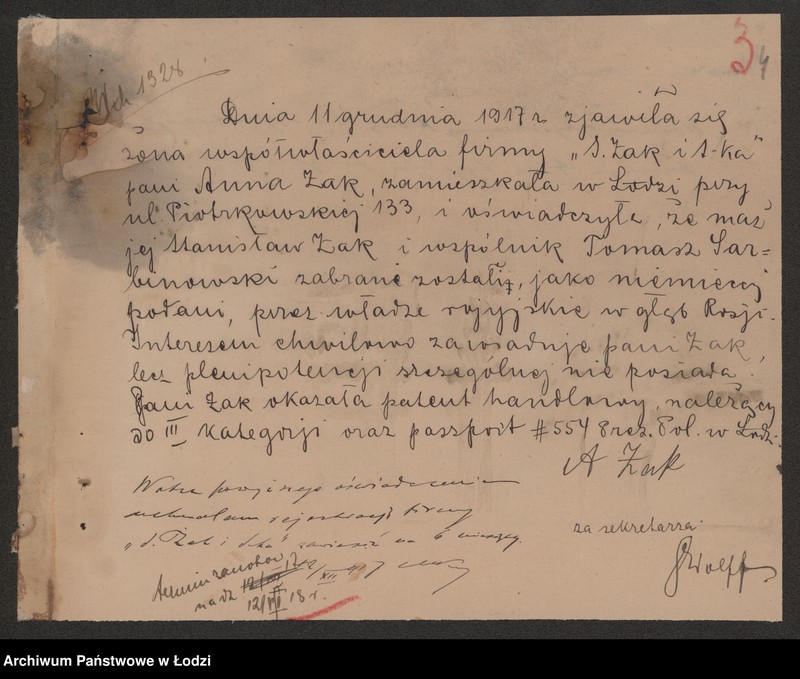 3 4
1328
Dnia 11 grudnia 1917 r. zjawiła się
żona współwłaściciela firmy „S. Żak i S-ka"
pani Anna Żak, zamieszkała w Łodzi przy
ul. Piotrkowskiej 133, i oświadczyła, że mąż
jej Stanisław Żak i wspólnik Tomasz Sar=
binowski zabrani zostali, jako niemieccy
podani, przez władze rosyjskie w głąb Rosji.
Interesem chwilowo zawiaduje pani Żak,
lecz plenipotencji szczególnej nie posiada.
Pani Żak okazała patent handlowy, należący
do III kategorji oraz passport #554 8 rez. Pol. w Łodzi.
A Żak
Wobec powyższego oświadczenia
uchwalam rejestrację firmy
„S. Żak i S-ka" zawiesić na 6 miesięcy.
za sekretarza:
GWolff
Termin zanotow.
na dz.
12/VI 18 r.
Archiwum Państwowe w Łodzi